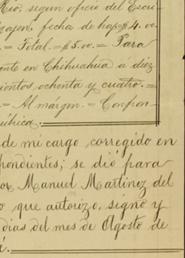 Rio segun oficio del Escri
fecha de hoy $4.00
= Total = $5.00 = Para
en Chihuahua á diez
cientos ochenta y cuatro. =
= Al margen. = Confron
ública.
de mi cargo corregido en
pondientes; se dió para
Manuel Martinez del
que autorizo, signo y
dias del mes de Agosto de